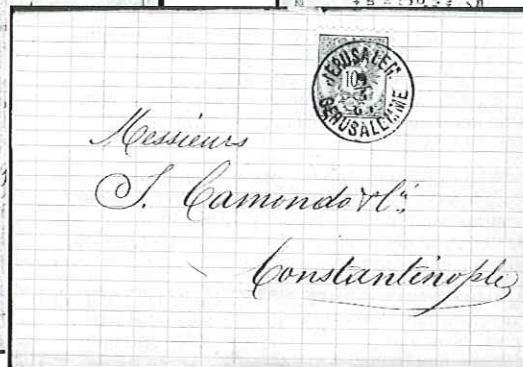 JERUSALEM
10
GERUSALEMME
Messieurs
J. Camondo & Cie
Constantinople